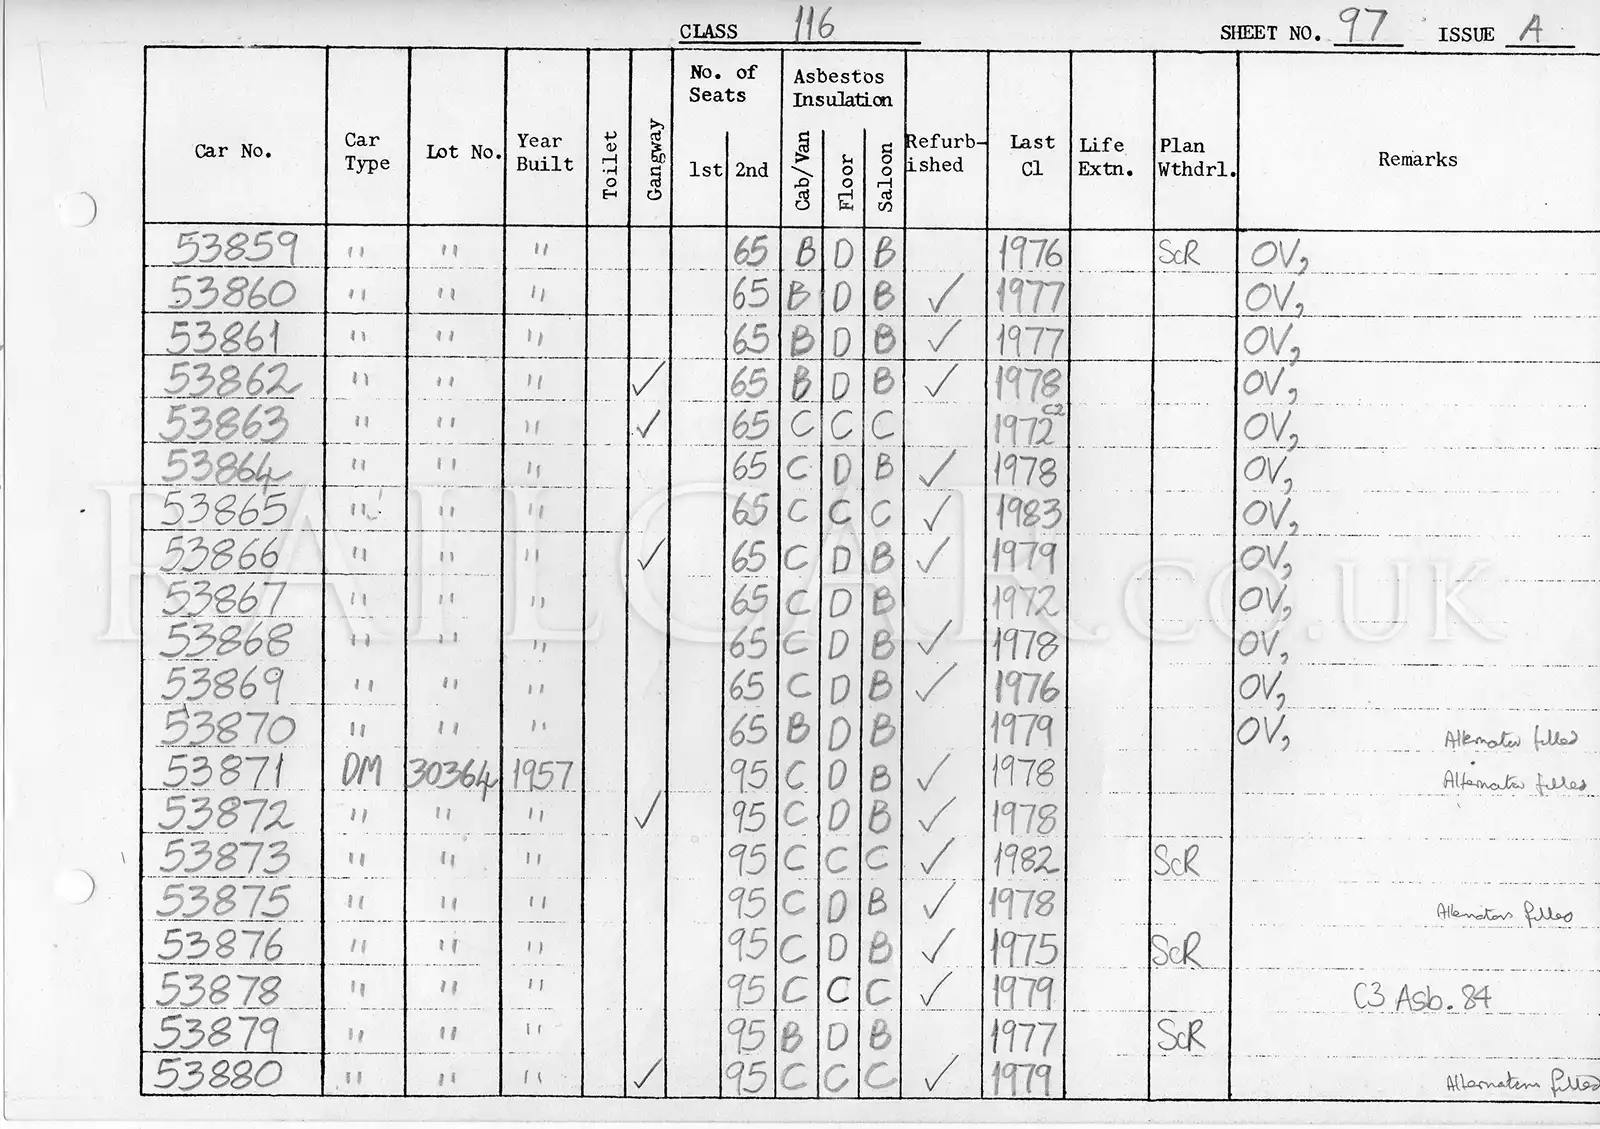 CLASS 116 SHEET NO. 97 ISSUE A
Car No. Car Type Lot No. Year Built Toilet Gangway No. of Seats 1st 2nd Asbestos Insulation Cab/Van Floor Saloon Refurb-ished Last Cl Life Extn. Plan Wthdrl. Remarks
53859 " " " 65 B D B 1976 ScR OV,
53860 " " " 65 B D B ✓ 1977 OV,
53861 " " " 65 B D B ✓ 1977 OV,
53862 " " " ✓ 65 B D B ✓ 1978 OV,
53863 " " " ✓ 65 C C C 1972 C2 OV,
53864 " " " 65 C D B ✓ 1978 OV,
53865 " " " 65 C C C ✓ 1983 OV,
53866 " " " ✓ 65 C D B ✓ 1979 OV,
53867 " " " 65 C D B 1972 OV,
53868 " " " 65 C D B ✓ 1978 OV,
53869 " " " 65 C D B ✓ 1976 OV,
53870 " " " 65 B D B 1979 OV, Alternator filled
53871 DM 30364 1957 95 C D B ✓ 1978 Alternator filled
53872 " " " ✓ 95 C D B ✓ 1978
53873 " " " 95 C C C ✓ 1982 ScR
53875 " " " 95 C D B ✓ 1978 Alternators filled
53876 " " " 95 C D B ✓ 1975 ScR
53878 " " " 95 C C C ✓ 1979 C3 Asb. 84
53879 " " " 95 B D B 1977 ScR
53880 " " " ✓ 95 C C C ✓ 1979 Alternators filled
RAILCAR.CO.UK